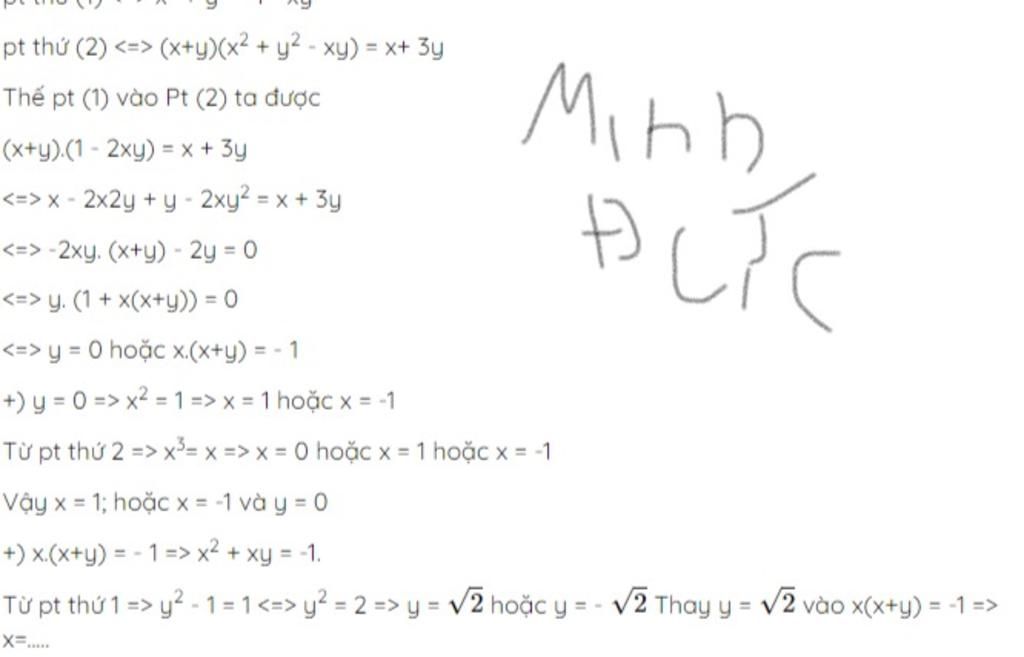 pt thứ (2) <=> (x+y)(x² + y² - xy) = x+ 3y
Thế pt (1) vào Pt (2) ta được
(x+y).(1 - 2xy) = x + 3y
<=> x - 2x2y + y - 2xy² = x + 3y
<=> -2xy. (x+y) - 2y = 0
<=> y. (1 + x(x+y)) = 0
<=> y = 0 hoặc x.(x+y) = - 1
+) y = 0 => x² = 1 => x = 1 hoặc x = -1
Từ pt thứ 2 => x³= x => x = 0 hoặc x = 1 hoặc x = -1
Vậy x = 1; hoặc x = -1 và y = 0
+) x.(x+y) = - 1 => x² + xy = -1.
Từ pt thứ 1 => y² - 1 = 1 <=> y² = 2 => y = √2 hoặc y = - √2 Thay y = √2 vào x(x+y) = -1 =>
x=.....
Minh
Đức